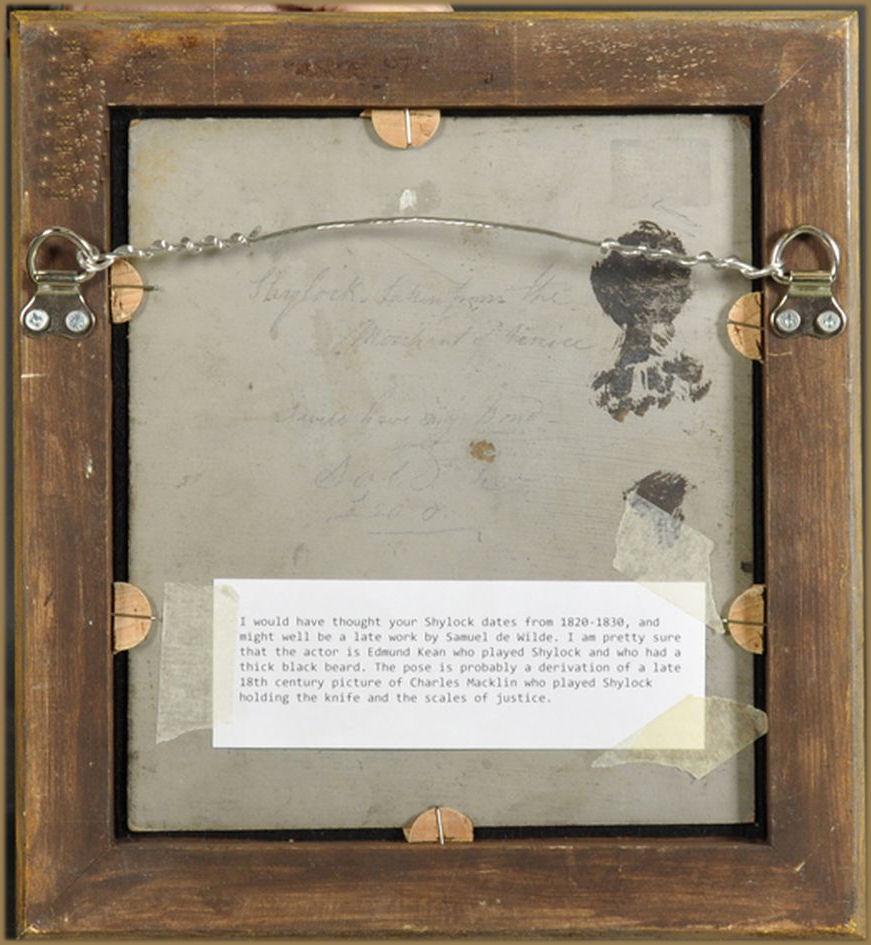 Shylock. taken from the
Merchant of Venice
I will have my Bond
I would have thought your Shylock dates from 1820-1830, and
might well be a late work by Samuel de Wilde. I am pretty sure
that the actor is Edmund Kean who played Shylock and who had a
thick black beard. The pose is probably a derivation of a late
18th century picture of Charles Macklin who played Shylock
holding the knife and the scales of justice.